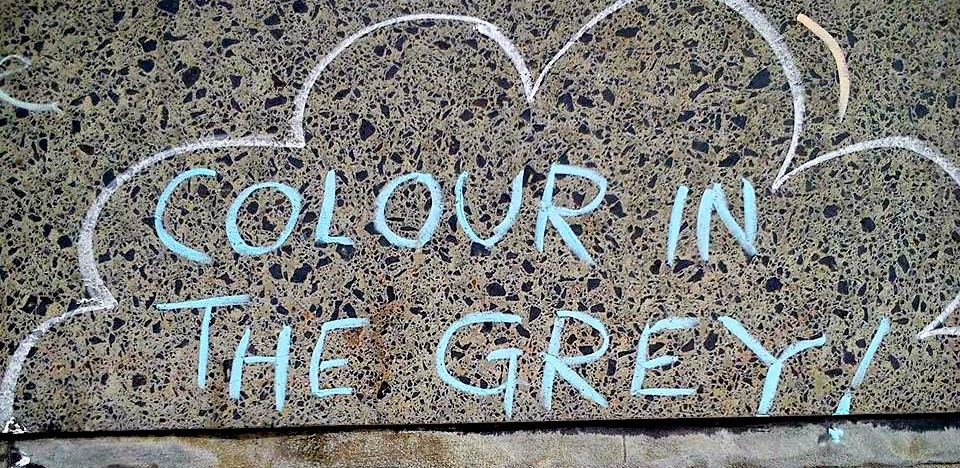 COLOUR IN
THE GREY!